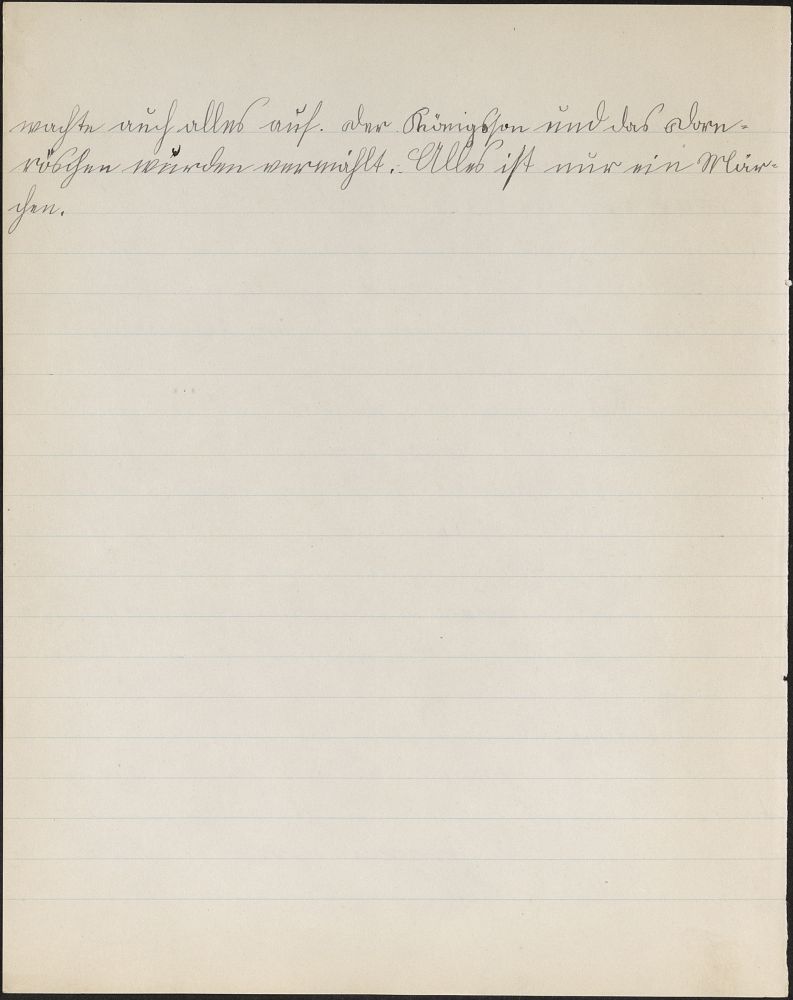 wachte auch alles auf. Der Königsson und das Dorn-
röschen wurden vermählt. Alles ist nur ein Mär-
chen.